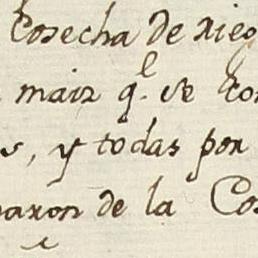 Cosecha de rieg
maiz q.e se co
s, y todas por
paron de la Cos